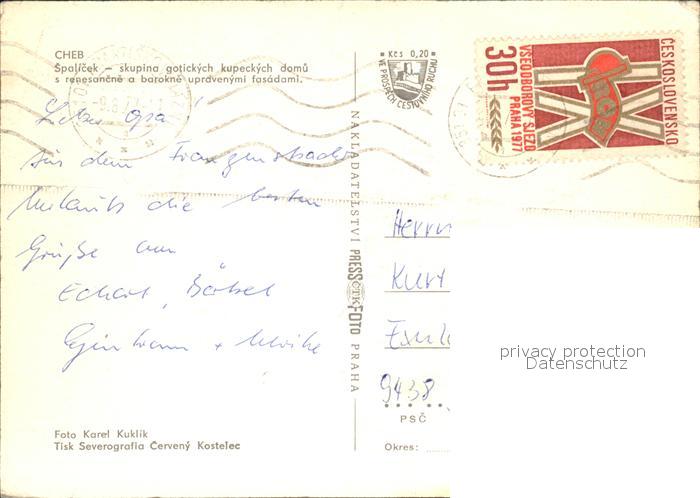 CHEB
Špalíček – skupina gotických kupeckých domů
s renesančně a barokně upravenými fasádami.
Kčs 0,20
VE PROSPĚCH CESTOVNÍHO RUCHU
ČESKOSLOVENSKO
VŠEODBOROVÝ SJEZD
PRAHA 1977
30h
Lieber Opa!
aus dem Franzensbader
Urlaub die besten
Grüße von
Bärbel
+ Ulrike
NAKLADATELSTVÍ PRESSFOTO PRAHA
ČTK
Herrn
Kurt
9438
PSČ
Okres:
Foto Karel Kuklík
Tisk Severografia Červený Kostelec
privacy protection
Datenschutz